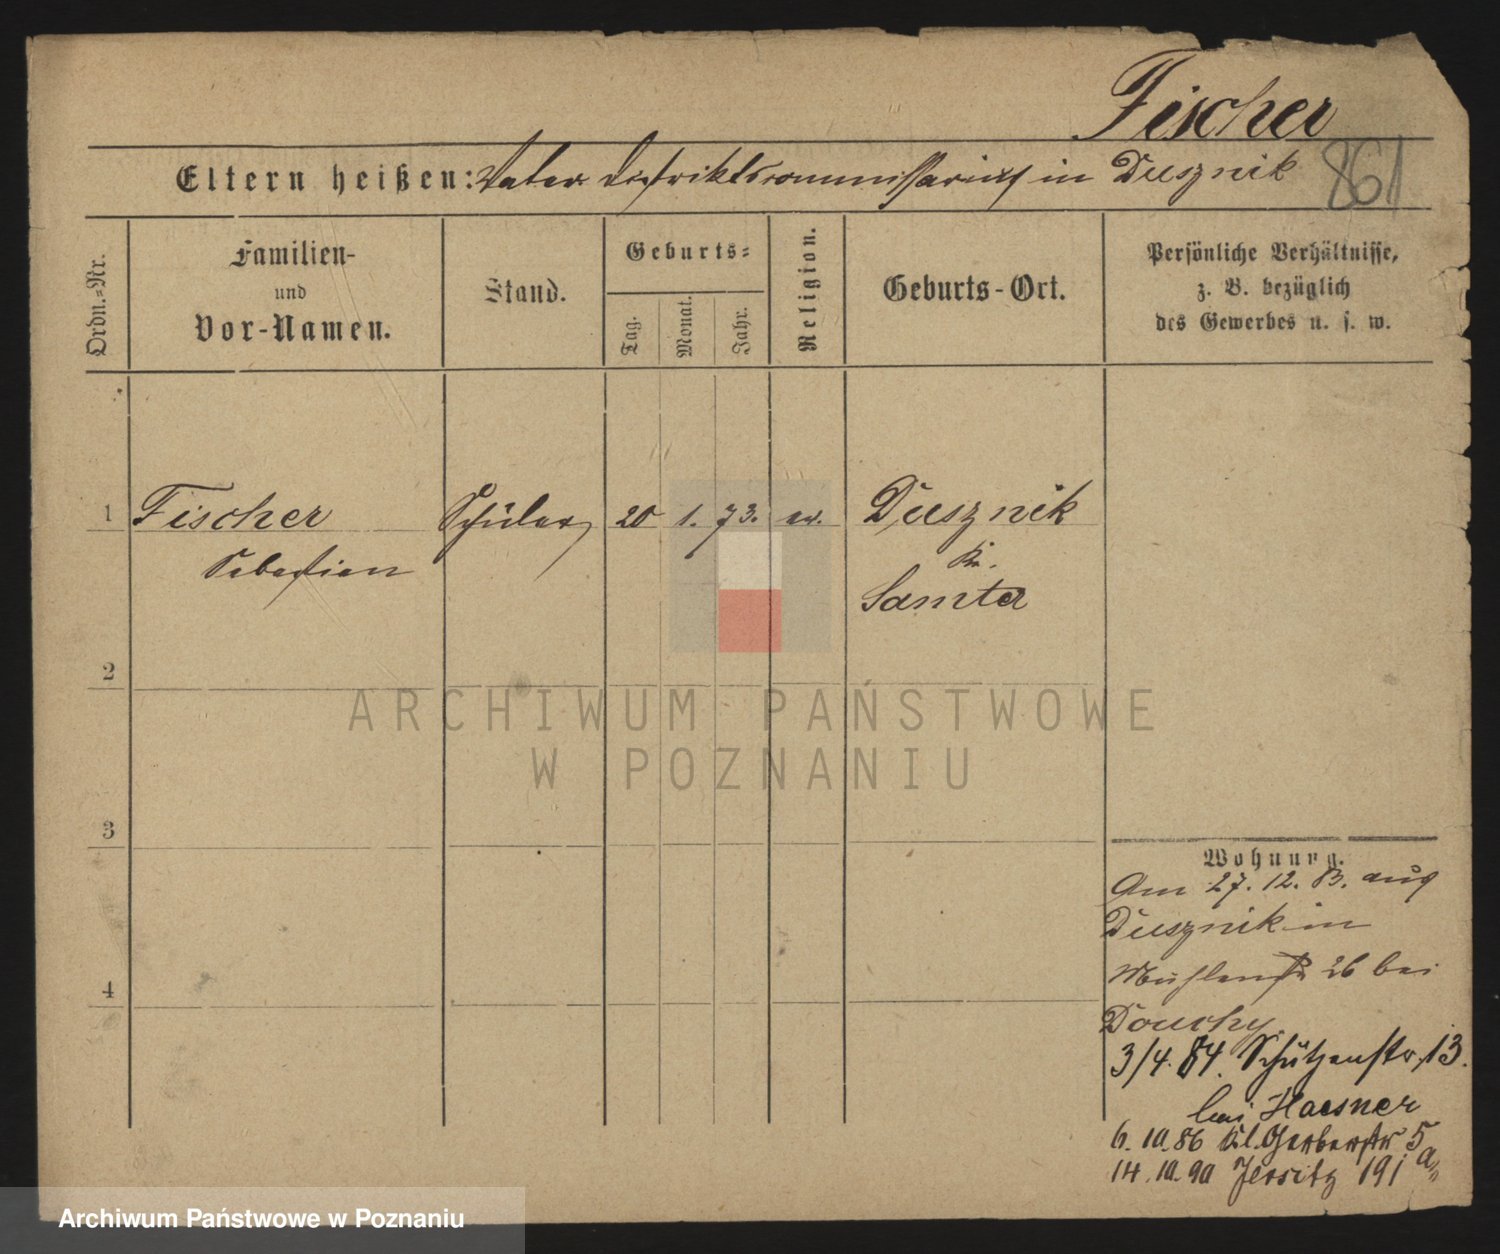 Fischer
Eltern heißen: Vater Distriktscommissarius in Dusznik
861
Ordn.-Nr.
Familien-
und
Vor-Namen.
Stand.
Geburts-
Tag.
Monat.
Jahr.
Religion.
Geburts-Ort.
Persönliche Verhältnisse,
z. B. bezüglich
des Gewerbes u. s. w.
1 Fischer Schüler 20 1. 73. ev. Dusznik
Sebastian
Kr.
Samter
2
3
4
Wohnung.
Am 27. 12. 83. aus
Dusznik in
Mühlenstr 26 bei
Douchy
3/4. 84. Schützenstr. 13.
bei Haesner
6. 10. 86 Kl. Gerberstr 5a
14. 10. 90 Jersitz 191
ARCHIWUM PAŃSTWOWE
W POZNANIU
Archiwum Państwowe w Poznaniu